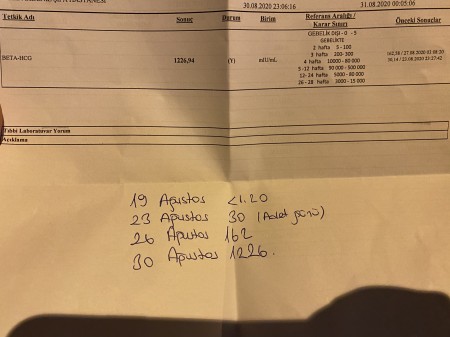 30.08.2020 23:06:16 31.08.2020 00:05:06
Tetkik Adı Sonuç Durum Birim Referans Aralığı / Karar Sınırı Önceki Sonuçlar
GEBELİK DIŞI - 0 - 5
GEBELİKTE
2 hafta 5-100
3 hafta 200-300
4 hafta 10000 - 80000
5-12 hafta 90 000 - 500 000
12- 24 hafta 5000 - 80 000
26 - 28 hafta 3000 - 15 000
BETA-HCG 1226,94 (Y) mIU/mL
Tıbbi Laboratuvar Yorum
Açıklama
19 Ağustos <1.20
23 Ağustos 30 (Adet günü)
26 Ağustos 162
30 Ağustos 1226.